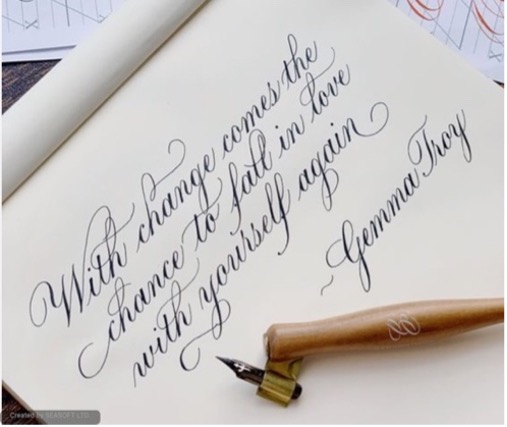 With change comes the
chance to fall in love
with yourself again
~Gemma Troy
Created by SEASOFT LTD.